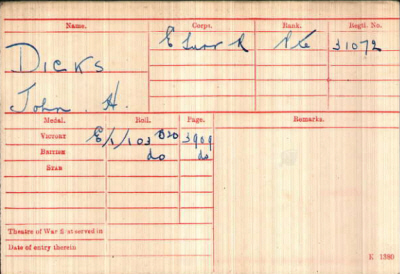 Name. Corps. Rank. Regtl. No.
DICKS E Surr R Pte 31072
John H.
Medal. Roll. Page. Remarks.
VICTORY E/1/103 B20 3909
BRITISH do do
STAR
Theatre of War first served in
Date of entry therein
K 1380